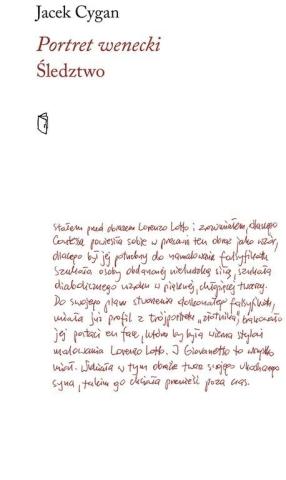 Jacek Cygan
Portret wenecki
Śledztwo
Stałem przed obrazem Lorenzo Lotto i zrozumiałem, dlaczego
Contessa powiesiła sobie w pracowni ten obraz jako wzór,
dlaczego był jej potrzebny do namalowania falsyfikatu.
Szukała osoby obdarzonej nieludzką siłą, szukała
diabolicznego wzroku w pięknej, chłopięcej twarzy.
Do swojego planu stworzenia doskonałego falsyfikatu,
miała już profil z trójportretu „złotnika", brakowało
jej postaci en face, która by była wierna stylowi
malowania Lorenzo Lotto. I Giovanetto to wszystko
miał. Widziała w tym obrazie twarz swojego ukochanego
syna, takim go chciała przenieść poza czas.